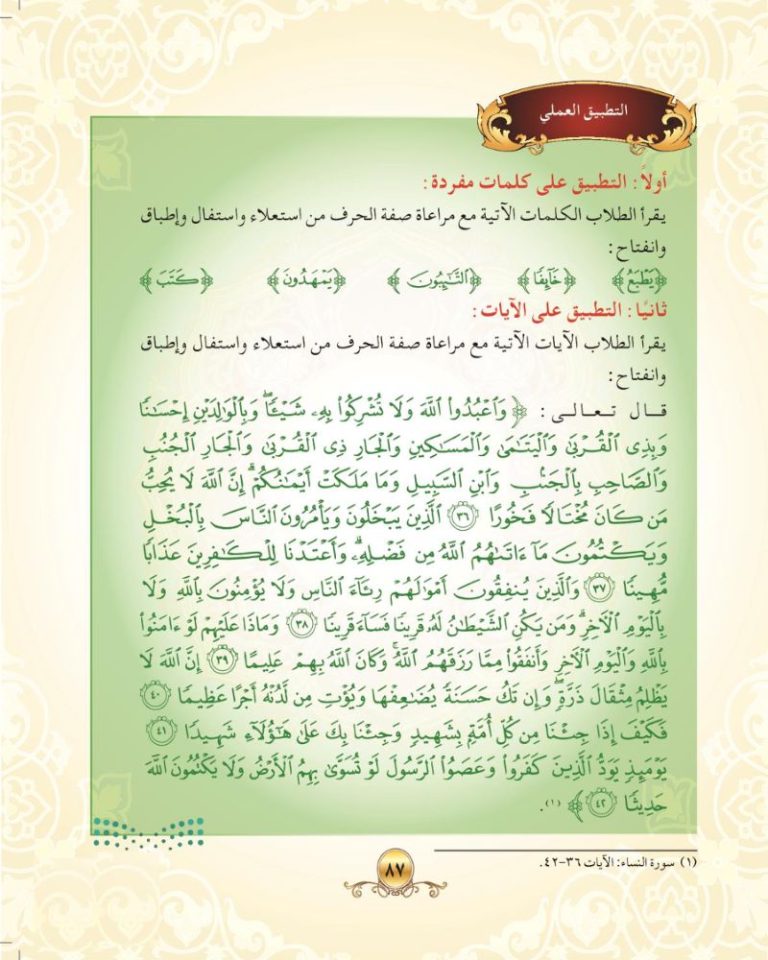 التطبيق العملي
أولاً : التطبيق على كلمات مفردة :
يقرأ الطلاب الكلمات الآتية مع مراعاة صفة الحرف من استعلاء واستفال وإطباق
وانفتاح :
﴿يَطْبَعُ﴾ ﴿خَآئِفًا﴾ ﴿ٱلتَّـٰٓئِبُونَ﴾ ﴿يَمْهَدُونَ﴾ ﴿كَتَبَ﴾
ثانيًا : التطبيق على الآيات :
يقرأ الطلاب الآيات الآتية مع مراعاة صفة الحرف من استعلاء واستفال وإطباق
وانفتاح :
قال تعالى : ﴿ وَٱعْبُدُوا۟ ٱللَّهَ وَلَا تُشْرِكُوا۟ بِهِۦ شَيْـًٔا ۖ وَبِٱلْوَٰلِدَيْنِ إِحْسَـٰنًا
وَبِذِى ٱلْقُرْبَىٰ وَٱلْيَتَـٰمَىٰ وَٱلْمَسَـٰكِينِ وَٱلْجَارِ ذِى ٱلْقُرْبَىٰ وَٱلْجَارِ ٱلْجُنُبِ
وَٱلصَّاحِبِ بِٱلْجَنۢبِ وَٱبْنِ ٱلسَّبِيلِ وَمَا مَلَكَتْ أَيْمَـٰنُكُمْ ۗ إِنَّ ٱللَّهَ لَا يُحِبُّ
مَن كَانَ مُخْتَالًا فَخُورًا ٣٦ ٱلَّذِينَ يَبْخَلُونَ وَيَأْمُرُونَ ٱلنَّاسَ بِٱلْبُخْلِ
وَيَكْتُمُونَ مَآ ءَاتَىٰهُمُ ٱللَّهُ مِن فَضْلِهِۦ ۗ وَأَعْتَدْنَا لِلْكَـٰفِرِينَ عَذَابًا
مُّهِينًا ٣٧ وَٱلَّذِينَ يُنفِقُونَ أَمْوَٰلَهُمْ رِئَآءَ ٱلنَّاسِ وَلَا يُؤْمِنُونَ بِٱللَّهِ وَلَا
بِٱلْيَوْمِ ٱلْـَٔاخِرِ ۗ وَمَن يَكُنِ ٱلشَّيْطَـٰنُ لَهُۥ قَرِينًا فَسَآءَ قَرِينًا ٣٨ وَمَاذَا عَلَيْهِمْ لَوْ ءَامَنُوا۟
بِٱللَّهِ وَٱلْيَوْمِ ٱلْـَٔاخِرِ وَأَنفَقُوا۟ مِمَّا رَزَقَهُمُ ٱللَّهُ ۚ وَكَانَ ٱللَّهُ بِهِمْ عَلِيمًا ٣٩ إِنَّ ٱللَّهَ لَا
يَظْلِمُ مِثْقَالَ ذَرَّةٍ ۖ وَإِن تَكُ حَسَنَةً يُضَـٰعِفْهَا وَيُؤْتِ مِن لَّدُنْهُ أَجْرًا عَظِيمًا ٤٠
فَكَيْفَ إِذَا جِئْنَا مِن كُلِّ أُمَّةٍۭ بِشَهِيدٍ وَجِئْنَا بِكَ عَلَىٰ هَـٰٓؤُلَآءِ شَهِيدًا ٤١
يَوْمَئِذٍ يَوَدُّ ٱلَّذِينَ كَفَرُوا۟ وَعَصَوُا۟ ٱلرَّسُولَ لَوْ تُسَوَّىٰ بِهِمُ ٱلْأَرْضُ وَلَا يَكْتُمُونَ ٱللَّهَ
حَدِيثًا ٤٢ ﴾ (١).
(١) سورة النساء: الآيات ٣٦-٤٢.
٨٧